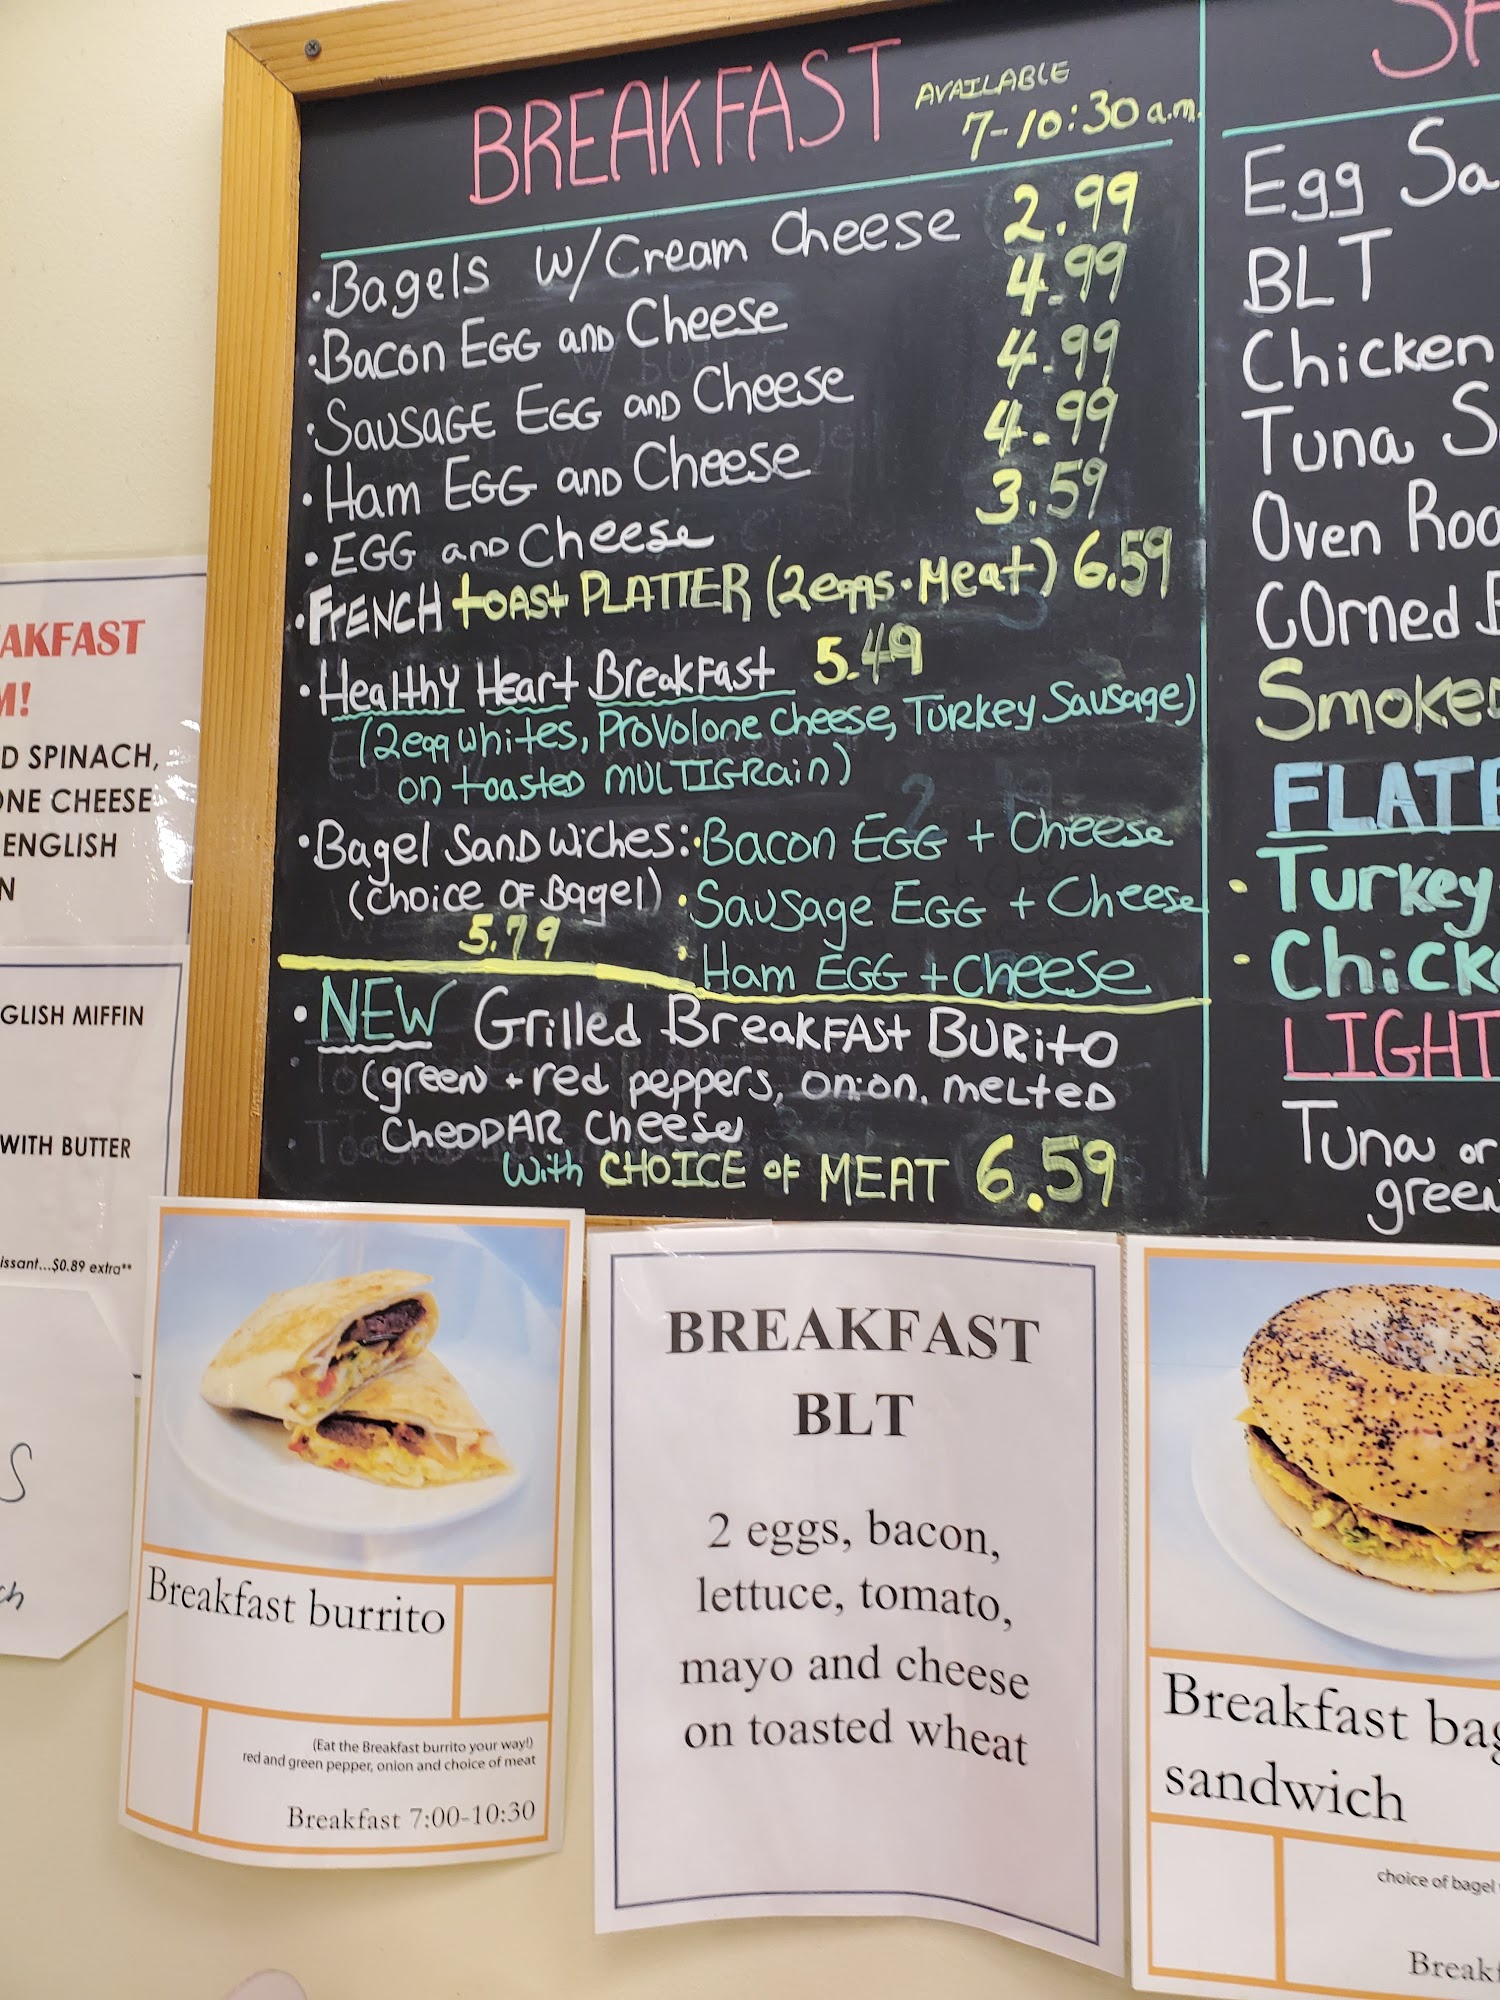 BREAKFAST AVAILABLE
7-10:30 a.m.
• Bagels w/Cream Cheese 2.99
• Bacon EGG and Cheese 4.99
• Sausage EGG and Cheese 4.99
• Ham EGG and Cheese 4.99
• EGG and Cheese 3.59
• FRENCH toast PLATTER (2eggs • Meat) 6.59
• Healthy Heart Breakfast 5.49
(2egg whites, Provolone Cheese, Turkey Sausage)
on toasted MULTIGRain)
• Bagel Sandwiches: • Bacon EGG + Cheese
(choice of Bagel) • Sausage EGG + Cheese
5.79 • Ham EGG + Cheese
• NEW Grilled BreakFAST BURitO
(green + red peppers, onion, melted
CHEDDAR cheese
with CHOICE of MEAT 6.59
Egg Sa
BLT
Chicken
Tuna S
Oven Roa
Corned
Smoked
FLAT
• Turkey
• Chick
LIGHT
Tuna or
green
AKFAST
M!
D SPINACH,
ONE CHEESE
ENGLISH
N
GLISH MIFFIN
WITH BUTTER
issant...$0.89 extra**
S
ch
Breakfast burrito
(Eat the Breakfast burrito your way!)
red and green pepper, onion and choice of meat
Breakfast 7:00-10:30
BREAKFAST
BLT
2 eggs, bacon,
lettuce, tomato,
mayo and cheese
on toasted wheat
Breakfast bag
sandwich
choice of bagel
Breakf